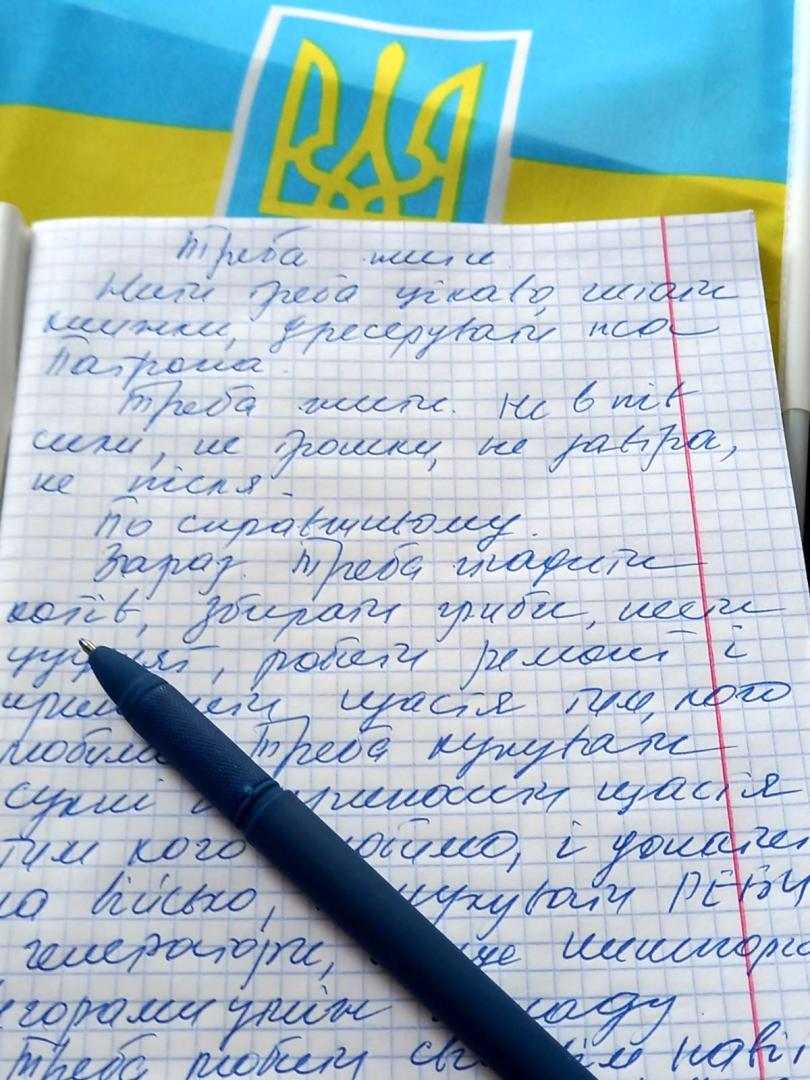 Треба жити
Жити треба цікаво, читати
книжки, дресерувати пса
Патрона.
Треба жити. Не в пів
сили, не трошки, не завтра,
не після.
По справжньому.
Зараз. Треба гладити
котів, збирати гриби,
робити ремонт і
щастя тим, кого
любимо. Треба купувати
сукні приносити щастя
тим кого любимо, і донатити
на військо, шукати РЕБи
генератори,
Треба любити навіть